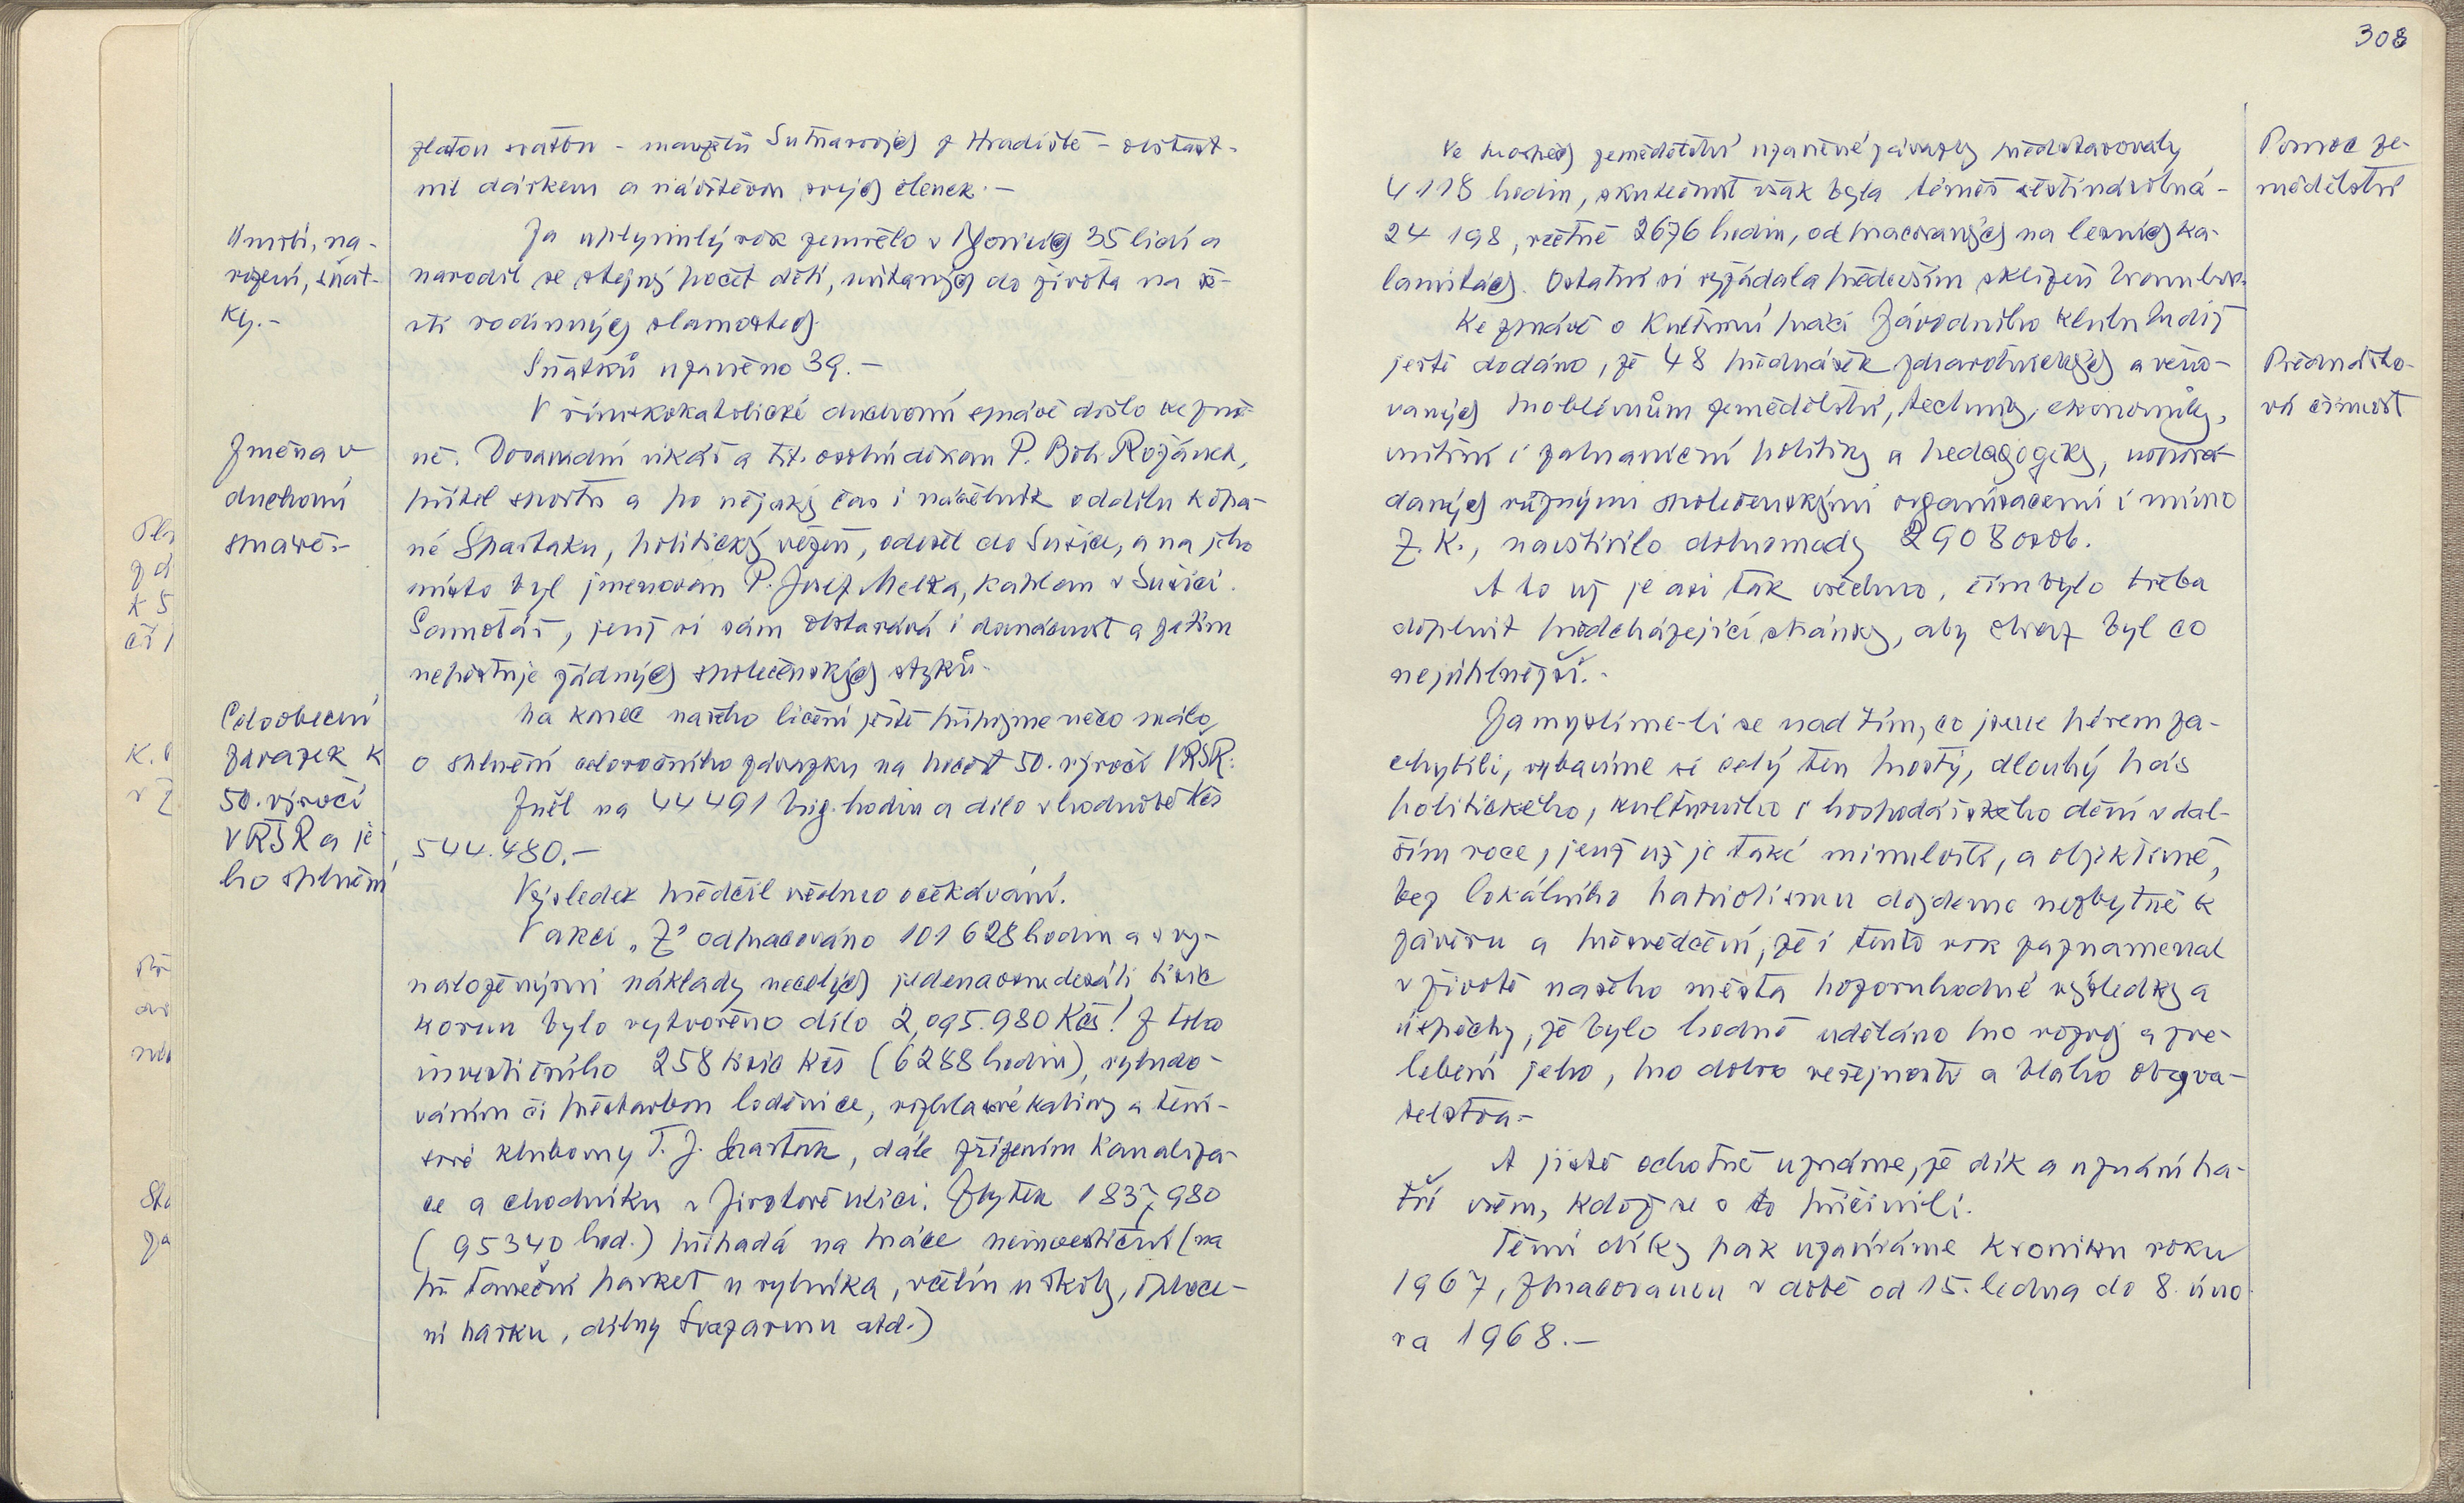 308
zlatou svatbu - manželů Sutnarových z Hradiště - ošťast-
nil dárkem a návštěvou svých členek. -
Úmrtí, na-
rození, sňat-
ky. -
Za uplynulý rok zemřelo v 35 lidí a
narodil se stejný počet dětí, vítaných do života na še-
sti rodinných slavnostech.
Sňatků uzavřeno 39. -
Změna v
duchovní
správě. -
V římskokatolické duchovní správě došlo ke změ-
ně. Dosavadní vikář a tit. osobní děkan P. Boh. Rožánek,
přítel sportu a po nějaký čas i náčelník oddílu kopa-
né Spartaku, politický vězeň, odešel do Sušice, a na jeho
místo byl jmenován P. Josef Melka, kaplan v Sušici.
Samotář, jenž si sám obstarává i domácnost a zatím
nepěstuje žádných společenských styků.
Celoobecní
závazek k
50. výročí
VŘSR a je-
ho splnění
Na konec našeho líčení ještě připojme něco málo
o splnění celoročního závazku na počest 50. výročí VŘSR:
Zněl na 44 491 brig. hodin a dílo v hodnotě Kčs
544.480.-
Výsledek předčil všechno očekávání.
V akci „Z" odpracováno 101 628 hodin a s vy-
naloženými náklady necelých jedenaosmdesáti tisíc
korun bylo vytvořeno dílo 2,095.980 Kčs! Z toho
investičního 258 tisíc Kčs (6288 hodin), vybudo-
váním či přístavbou loděnice, rozhlasové kabiny a teni-
sové klubovny T. J. Spartak, dále zřízením kanaliza-
ce a chodníku v Jiráskově ulici. Zbytek 1 837,980
(95340 hod.) připadá na práce neinvestiční (na
př. taneční parket u rybníka, včelín u školy, oploce-
ní parku, dílny Svazarmu atd.)
Pomoc ze-
mědělství
Ve prospěch zemědělství uzavřené závazky představovaly
4 118 hodin, skutečnost však byla téměř šestinásobná -
24 198, včetně 2676 hodin, odpracovaných na lesních ka-
lamitách. Ostatní si vyžádala především sklizeň brambor.
Přednáško-
vá činnost
Ke zprávě o kulturní práci Závodního klubu budiž
ještě dodáno, že 48 přednášek zdravotnických a věno-
vaných problémům zemědělství, techniky, ekonomiky,
vnitřní i zahraniční politiky a pedagogiky, uspořá-
daných různými společenskými organizacemi i mimo
Z. K., navštívilo dohromady 2908 osob.
A to už je asi tak všechno, čím bylo třeba
doplnit předcházející stránky, aby obraz byl co
nejúplnější. -
Zamyslíme-li se nad tím, co jsme pérem za-
chytili, vybavíme si celý ten prostý, dlouhý pás
politického, kulturního i hospodářského dění v dal-
ším roce, jenž už je také minulostí, a objektivně,
bez lokálního patriotismu dojdeme nezbytně k
závěru a přesvědčení, že i tento rok zaznamenal
v životě našeho města pozoruhodné výsledky a
úspěchy, že bylo hodně uděláno pro rozvoj a zve-
lebení jeho, pro dobro veřejnosti a blaho obyva-
telstva. -
A jistě ochotně uznáme, že dík a uznání pa-
tří všem, kdož se o to přičinili.
Těmi díky pak uzavíráme kroniku roku
1967, zpracovanou v době od 15. ledna do 8. úno-
ra 1968. -